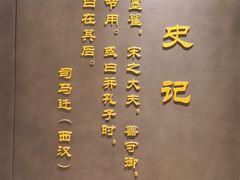 史记
墨翟，宋之大夫，善守御，
节用。或曰并孔子时，
曰在其后。
司马迁（西汉）